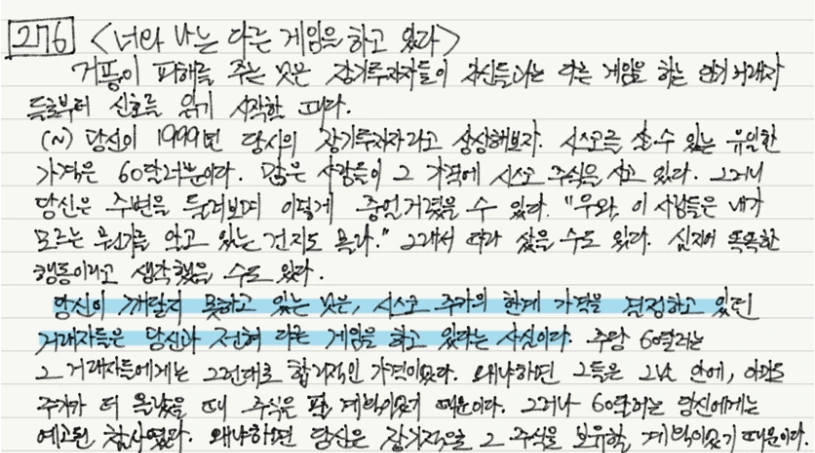 276 <너와 나는 다른 게임을 하고 있다>
거품이 피해를 주는 것은 장기투자자들이 자신들과는 다른 게임을 하는 단기 거래자
들로부터 신호를 읽기 시작할 때다.
(N) 당신이 1999년 당시의 장기투자자라고 상상해보자. 시스코를 살 수 있는 유일한
가격은 60달러뿐이다. 많은 사람들이 그 가격에 시스코 주식을 사고 있다. 그러니
당신은 주변을 둘러보며 이렇게 중얼거렸을 수 있다. "우와, 이 사람들은 내가
모르는 무언가를 알고 있는 건지도 몰라." 그래서 따라 샀을 수도 있다. 심지어 똑똑한
행동이라고 생각했을 수도 있다.
당신이 깨닫지 못하고 있는 것은, 시스코 주가의 한계 가격을 결정하고 있던
거래자들은 당신과 전혀 다른 게임을 하고 있다는 사실이다. 주당 60달러는
그 거래자들에게는 그런대로 합리적인 가격이었다. 왜냐하면 그들은 그날 안에, 아마도
주가가 더 올랐을 때 주식을 팔 계획이었기 때문이다. 그러나 60달러는 당신에게는
예고된 참사였다. 왜냐하면 당신은 장기적으로 그 주식을 보유할 계획이었기 때문이다.